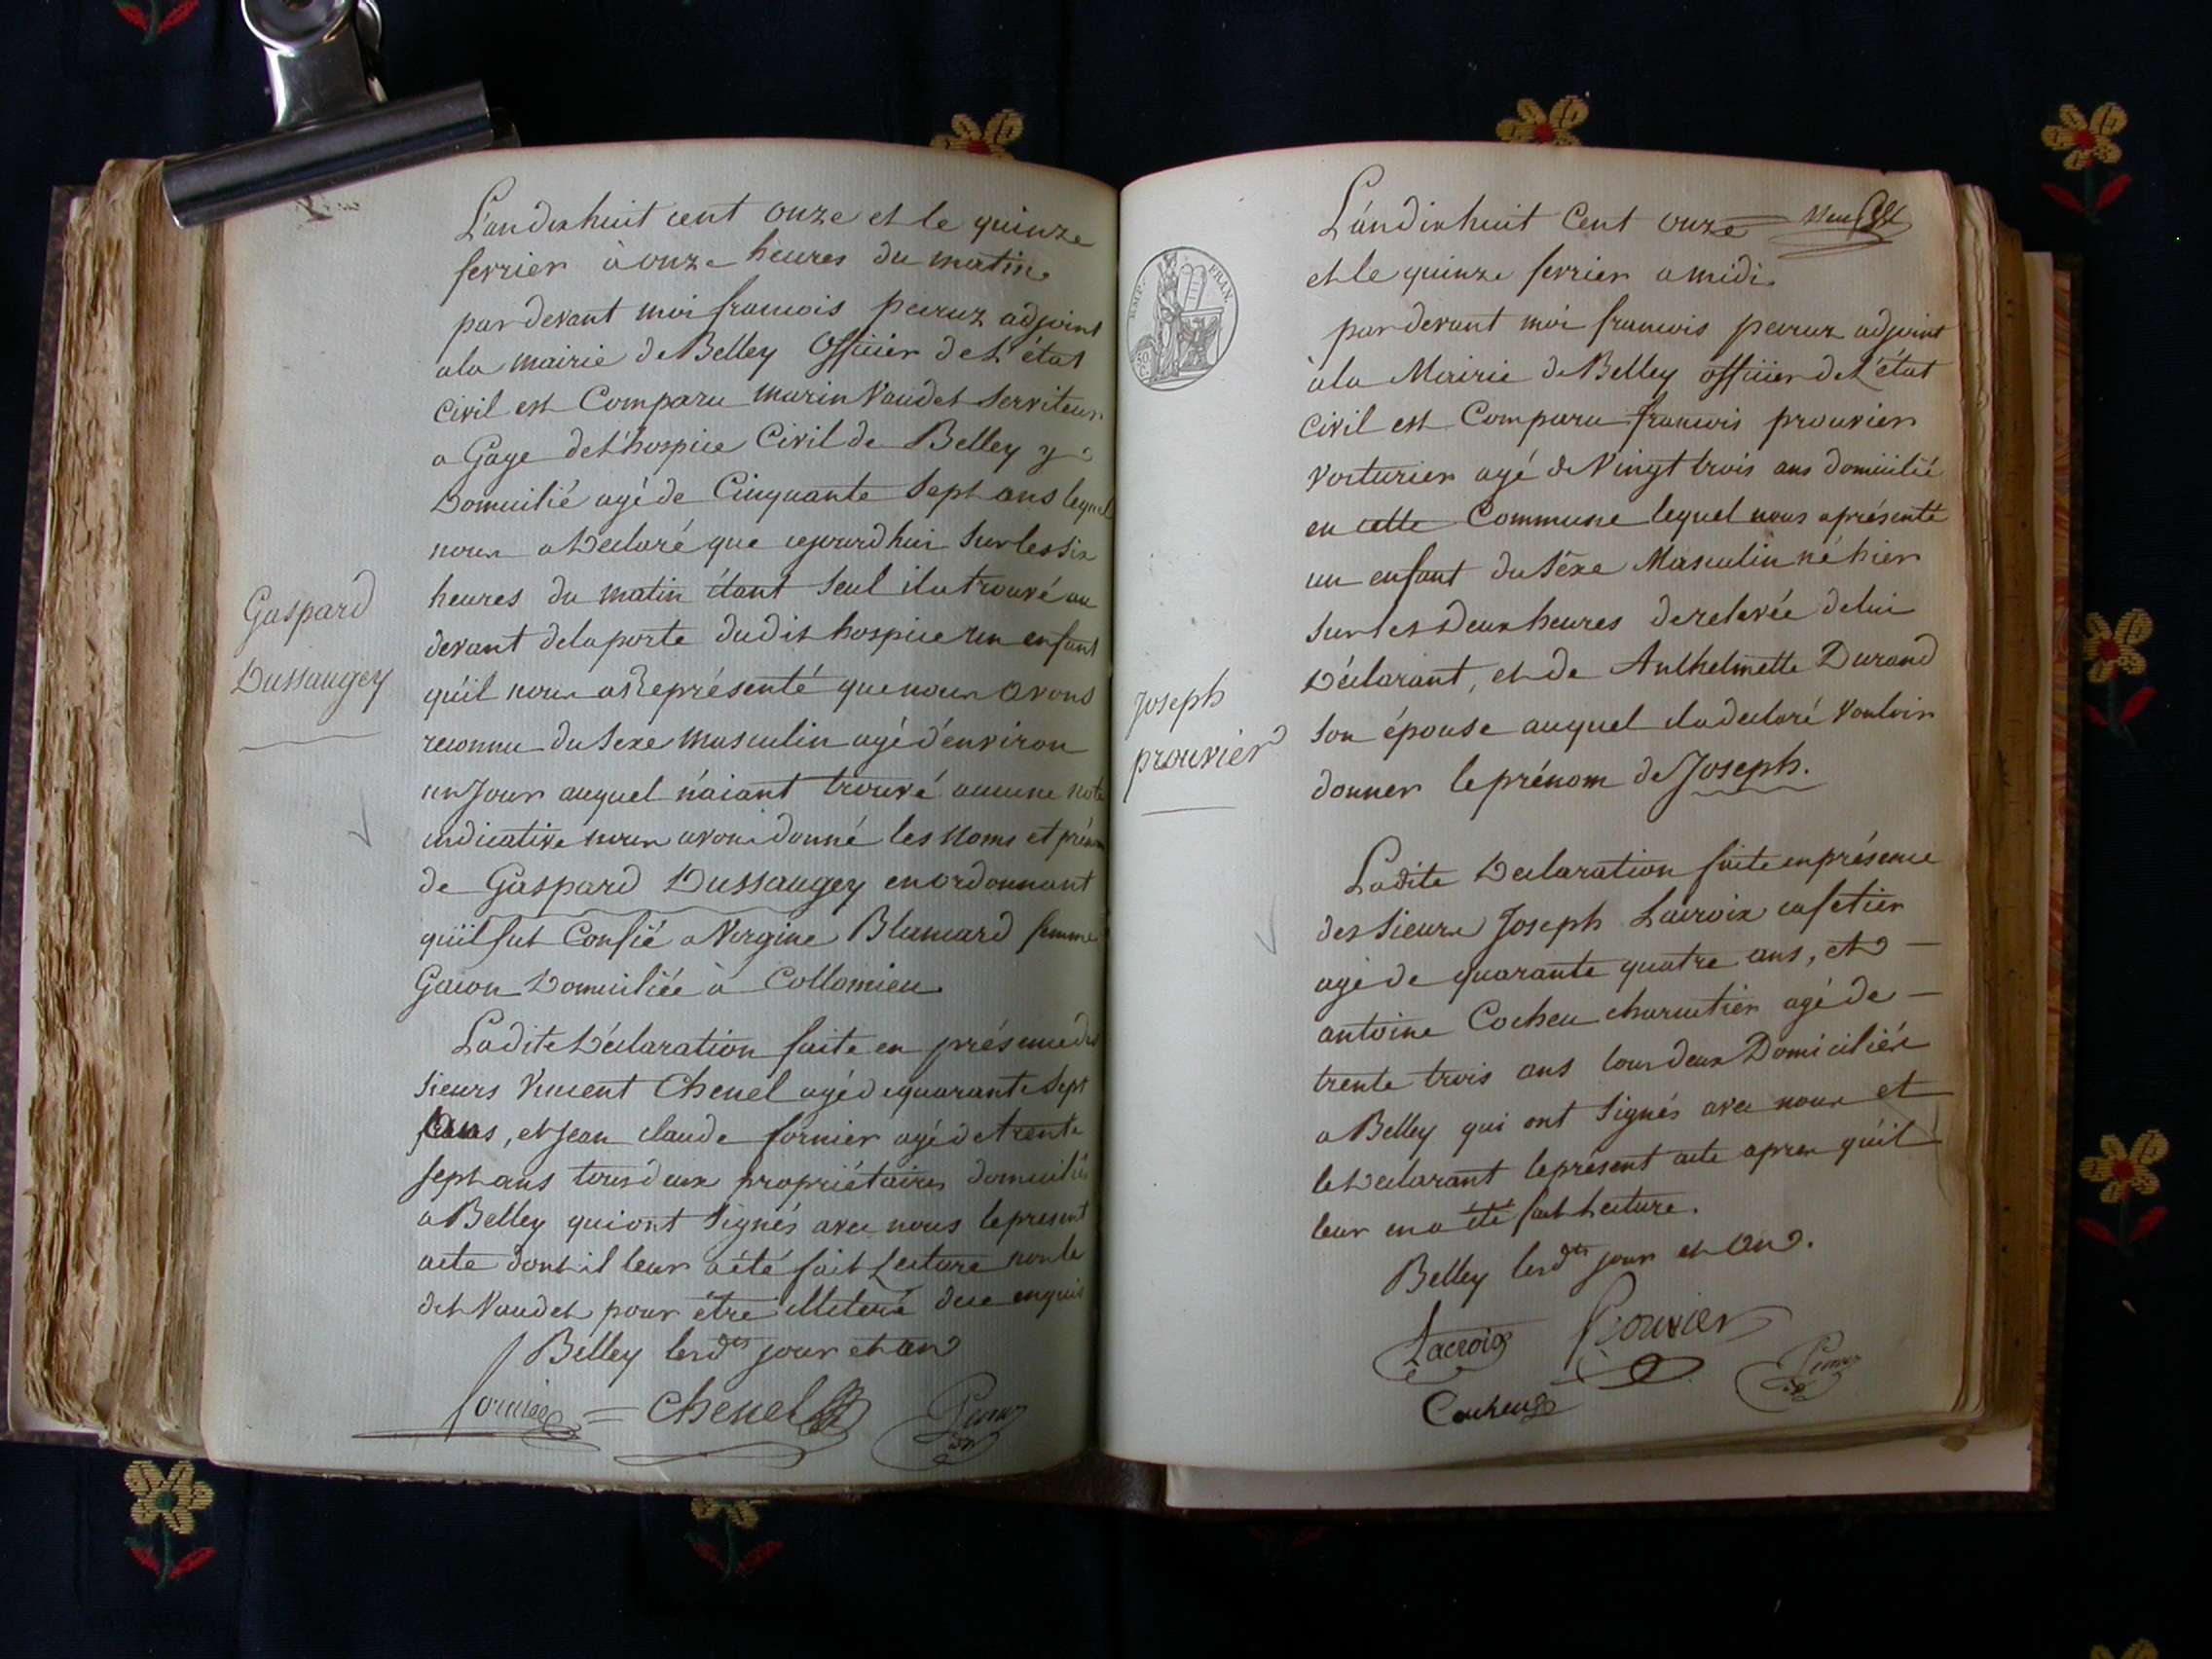 L'an dix huit cent onze et le quinze
fevrier à onze heures du matin
par devant moi francois peiruz adjoint
a la mairie de Belley Officier de L'état
Civil est Comparu marin Vaudet Serviteur
a Gage de L'hospice Civil de Belley y
Domicilié agé de Cinquante Sept ans lequel
nous a Déclaré que cejourd'hui Sur les Six
heures du matin étant Seul il a trouvé au
devant de la porte dudit hospice un enfant
qu'il nous a Représenté que nous avons
reconnu du Sexe masculin agé d'environ
un Jour auquel n'aiant trouvé aucune note
indicative nous avons donné les Noms et prénom
de Gaspard Dussaugey en ordonnant
qu'il fut Confié a Virgine Blancard femme
Gacon Domiciliée à Collomieu
La dite Déclaration faite en présence des
Sieurs Vincent Chenel agé de quarante Sept
ans, et Jean claude fornier agé de trente
sept ans tous deux propriétaires domiciliés
a Belley qui ont Signés avec nous le present
acte dont il leur a été fait Lecture non le
dit Vaudet pour être illiteré de ce enquis
Belley lesdts jour et an
fornier chenel
Gaspard
Dussaugey
L'an dix huit Cent onze
et le quinze fevrier a midi
par devant moi francois peiruz adjoint
à la Mairie de Belley officier de L'état
Civil est Comparu francois prouvier
Voiturier agé de Vingt trois ans domicilié
en cette Commune lequel nous a présenté
un enfant du Sèxe Masculin né hier
Sur les Deux heures de relevée de lui
Déclarant, et de Anthelmette Durand
Son épouse auquel il a declaré Vouloir
donner le prénom de Joseph.
La dite Declaration faite en présence
des Sieurs Joseph Lacroix cafetier
agé de quarante quatre ans, et
antoine Cocheu charcutier agé de
trente trois ans tous deux Domiciliés
a Belley qui ont Signés avec nous et
le Declarant le présent acte apres qu'il
leur en a été fait Lecture.
Belley lesdts jour et an.
Lacroix Prouvier
Joseph
prouvier
IMP. FRAN.